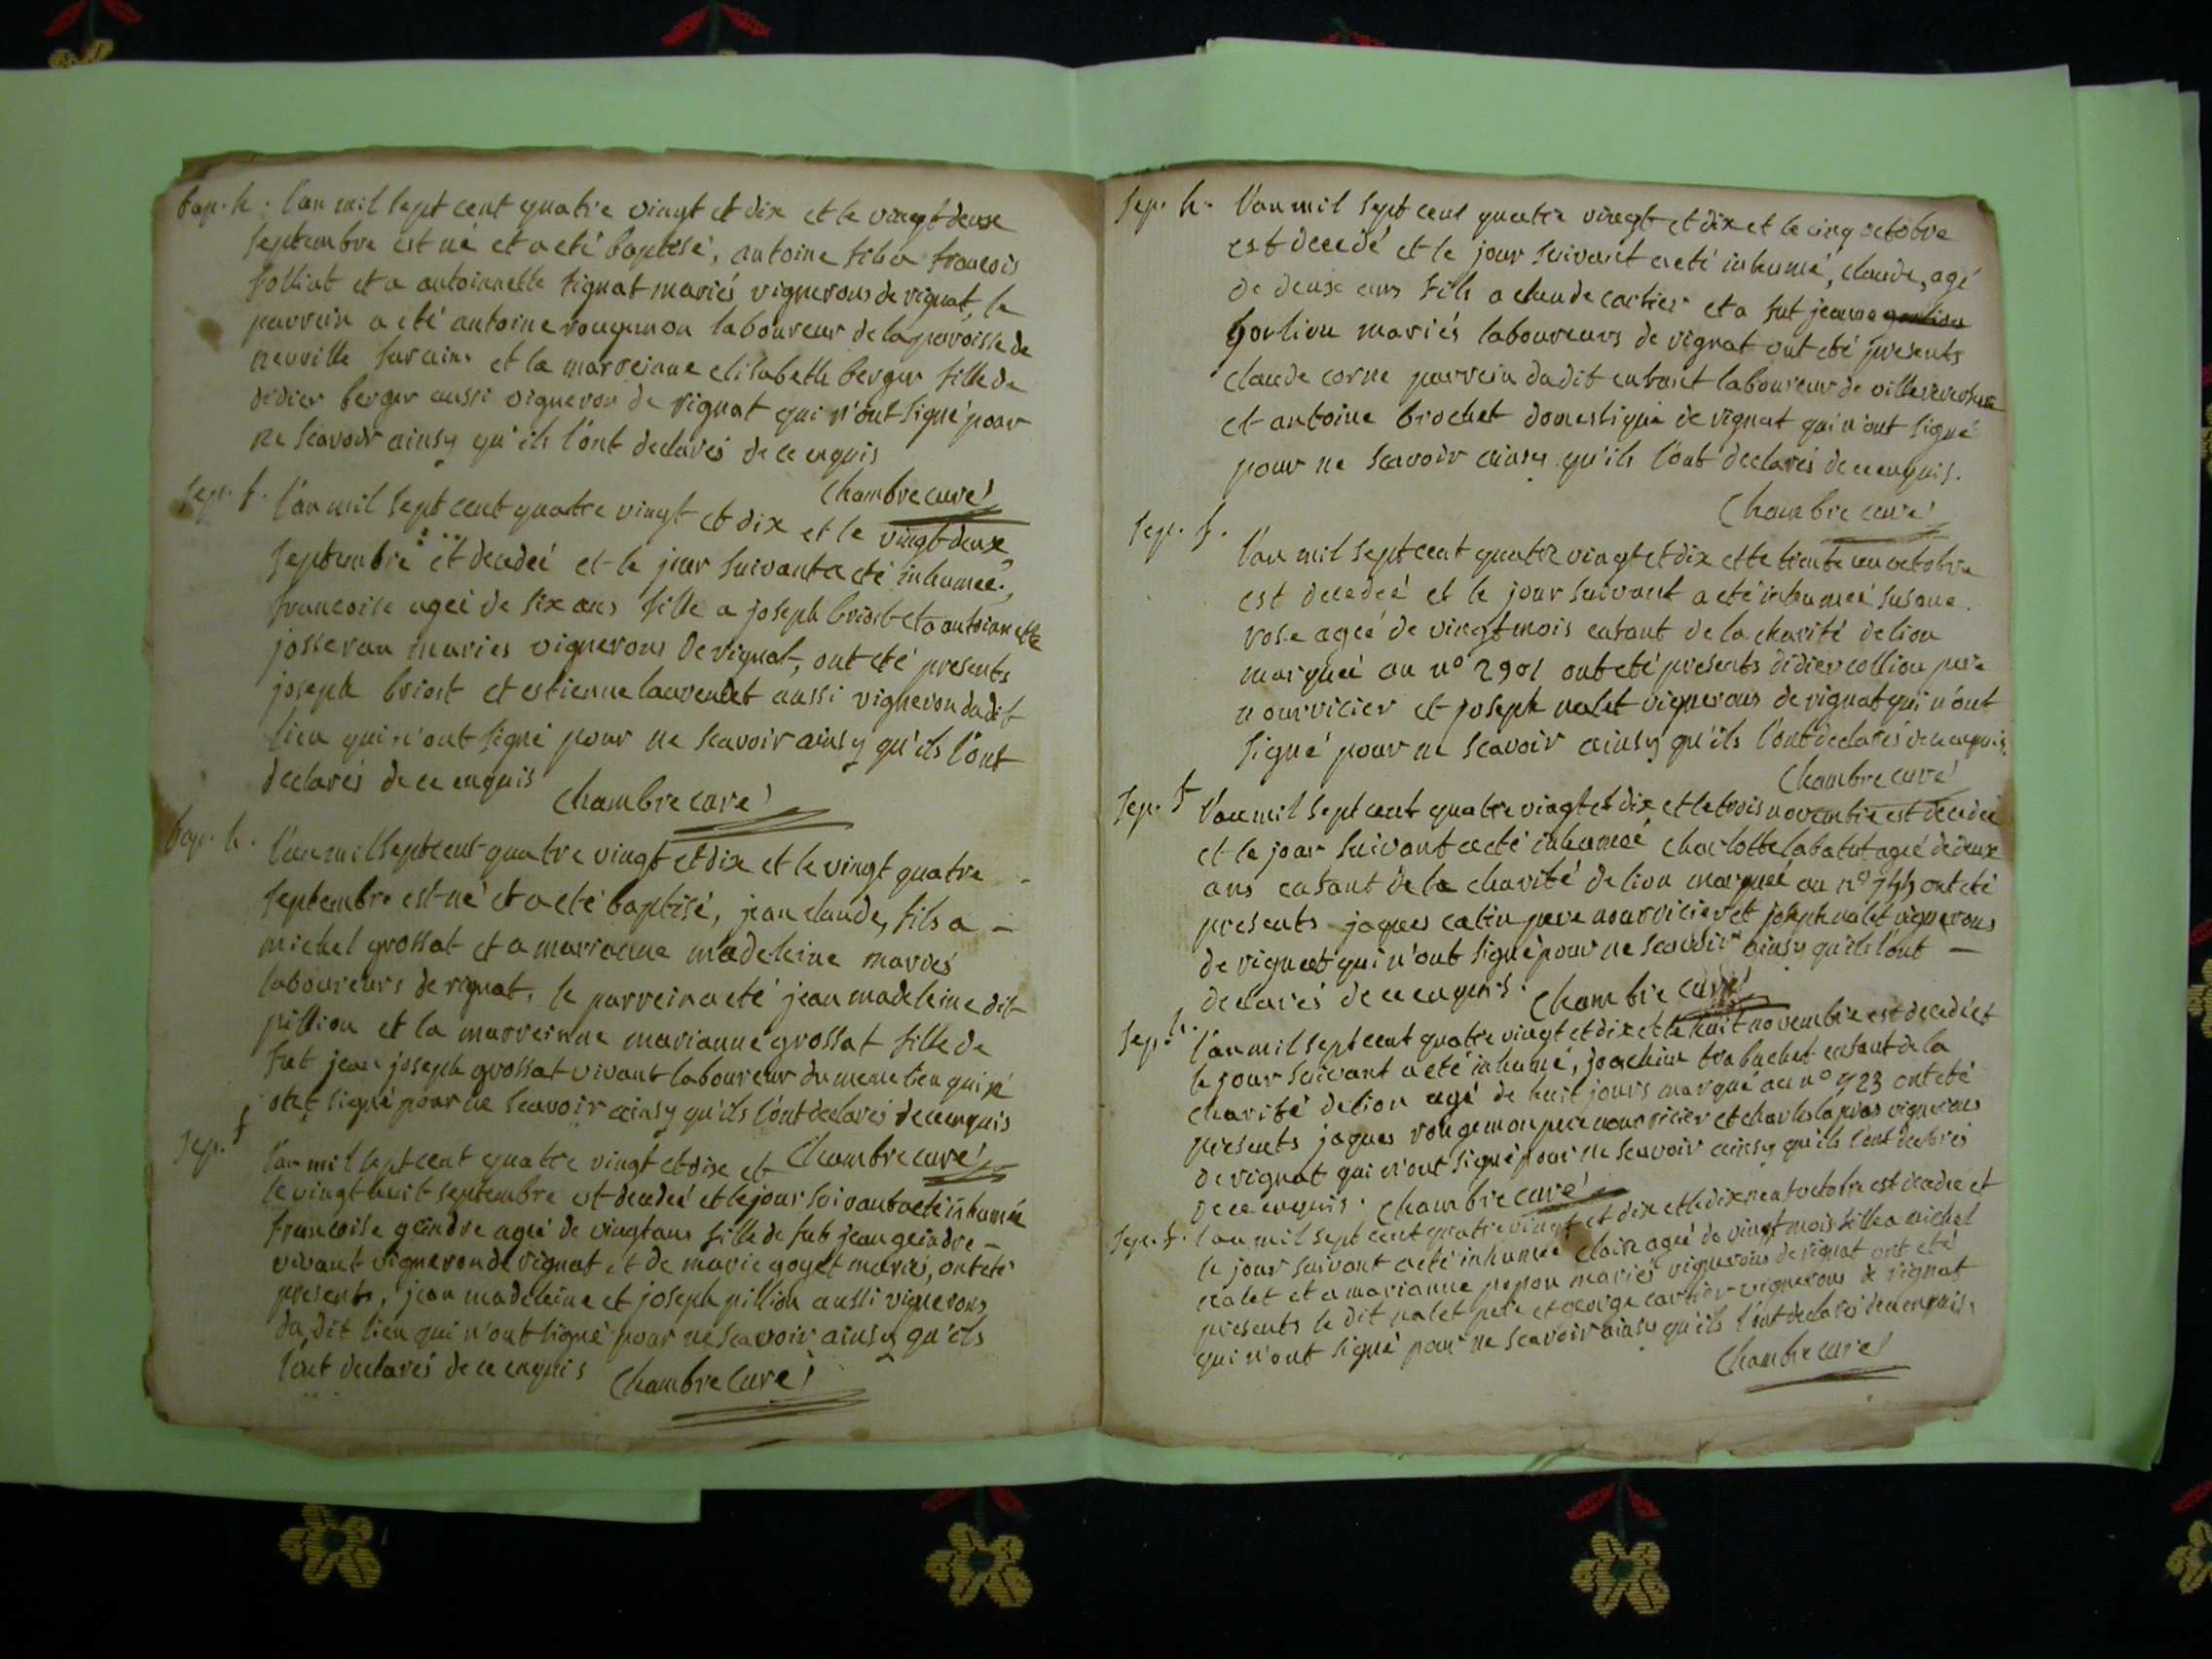 bap. h. l'an mil sept cent quatre vingt et dix et le vingt deuse
septembre est né et a eté baptisé, antoine fils a francois
folliat et a antoinette rignat mariés vignerons de rignat, le
parrein a eté antoine rougemon laboureur de la paroisse de
neuville sur ain. et la marreinne elisabeth berger fille de
didier berger aussi vigneron de rignat qui n'ont signé pour
ne scavoir ainsy qu'ils l'ont declarés de ce enquis
Chambre curé
sep. f. l'an mil sept cent quatre vingt et dix et le vingt deux
septembre est decedeé et le jour suivant a eté inhumeé,
francoise ageé de six ans fille a joseph briost et a antoinette
josseran mariés vignerons de rignat, ont eté presents
joseph briost et estienne laurendet aussi vigneron dudit
lieu qui n'ont signé pour ne scavoir ainsy qu'ils l'ont
declarés de ce enquis Chambre curé
bap. h. l'an mil sept cent quatre vingt et dix et le vingt quatre
septembre est né et a eté baptisé, jean claude, fils a
michel grossat et a marianne madeleine mariés
laboureurs de rignat, le parrein a eté jean madeleine dit
pillion et la marreinne marianne grossat fille de
fut jean joseph grossat vivant laboureur du meme lieu qui n'
ont signé pour ne scavoir ainsy qu'ils l'ont declarés de ce enquis
Chambre curé
sep. f l'an mil sept cent quatre vingt et dix et
le vingt huit septembre est decedeé et le jour suivant a eté inhumée
francoise geindre ageé de vingt ans fille de fut jean geindre
vivant vigneron de rignat et de marie goyet mariés, ont eté
presents, jean madeleine et joseph pillion aussi vignerons
du dit lieu qui n'ont signé pour ne scavoir ainsy qu'ils
l'ont declarés de ce enquis Chambre curé
sep. h. l'an mil sept cent quatre vingt et dix et le cinq octobre
est decedé et le jour suivant a eté inhumé, claude, agé
de deuse ans fils a claude cartier et a fut jeanne gorliou
gorliou mariés laboureurs de rignat ont eté presents
claude corne parrein dudit enfant laboureur de villereversure
et antoine brochet domestique de rignat qui n'ont signé
pour ne scavoir ainsy qu'ils l'ont declarés de ce enquis.
Chambre curé
sep. f. l'an mil sept cent quatre vingt et dix et le trente un octobre
est decedeé et le jour suivant a eté inhumeé susane
rose ageé de vingt mois enfant de la charité de lion
marqueé au n° 2901 ont eté presents didier collion pere
nourricier et joseph nalet vignerons de rignat qui n'ont
signé pour ne scavoir ainsy qu'ils l'ont declarés de ce enquis.
Chambre curé
sep. f l'an mil sept cent quatre vingt et dix et le trois novembre est decedeé
et le jour suivant a eté inhumeé charlotte labatut ageé de deux
ans enfant de la charité de lion marqueé au n° ont eté
presents jaques catin pere nourricier et joseph nalet vignerons
de rignat qui n'ont signé pour ne scavoir ainsy qu'ils l'ont
declarés de ce enquis. Chambre curé
sep. h. l'an mil sept cent quatre vingt et dix et le huit novembre est decedé et
le jour suivant a eté inhumé, joachim trabuchet enfant de la
charité de lion agé de huit jours marqué au n° 923 ont eté
presents jaques rongemon pere nourricier et charles lapras vignerons
de rignat qui n'ont signé pour ne scavoir ainsy qu'ils l'ont declarés
de ce enquis. Chambre curé
sep. f. l'an mil sept cent quatre vingt et dix et le dix neuf octobre est decedeé et
le jour suivant a eté inhumeé claire ageé de vingt mois fille a michel
nalet et a marianne popon mariés vignerons de rignat ont eté
presents le dit nalet pere et george cartier vignerons de rignat
qui n'ont signé pour ne scavoir ainsy qu'ils l'ont declarés de ce enquis.
Chambre curé